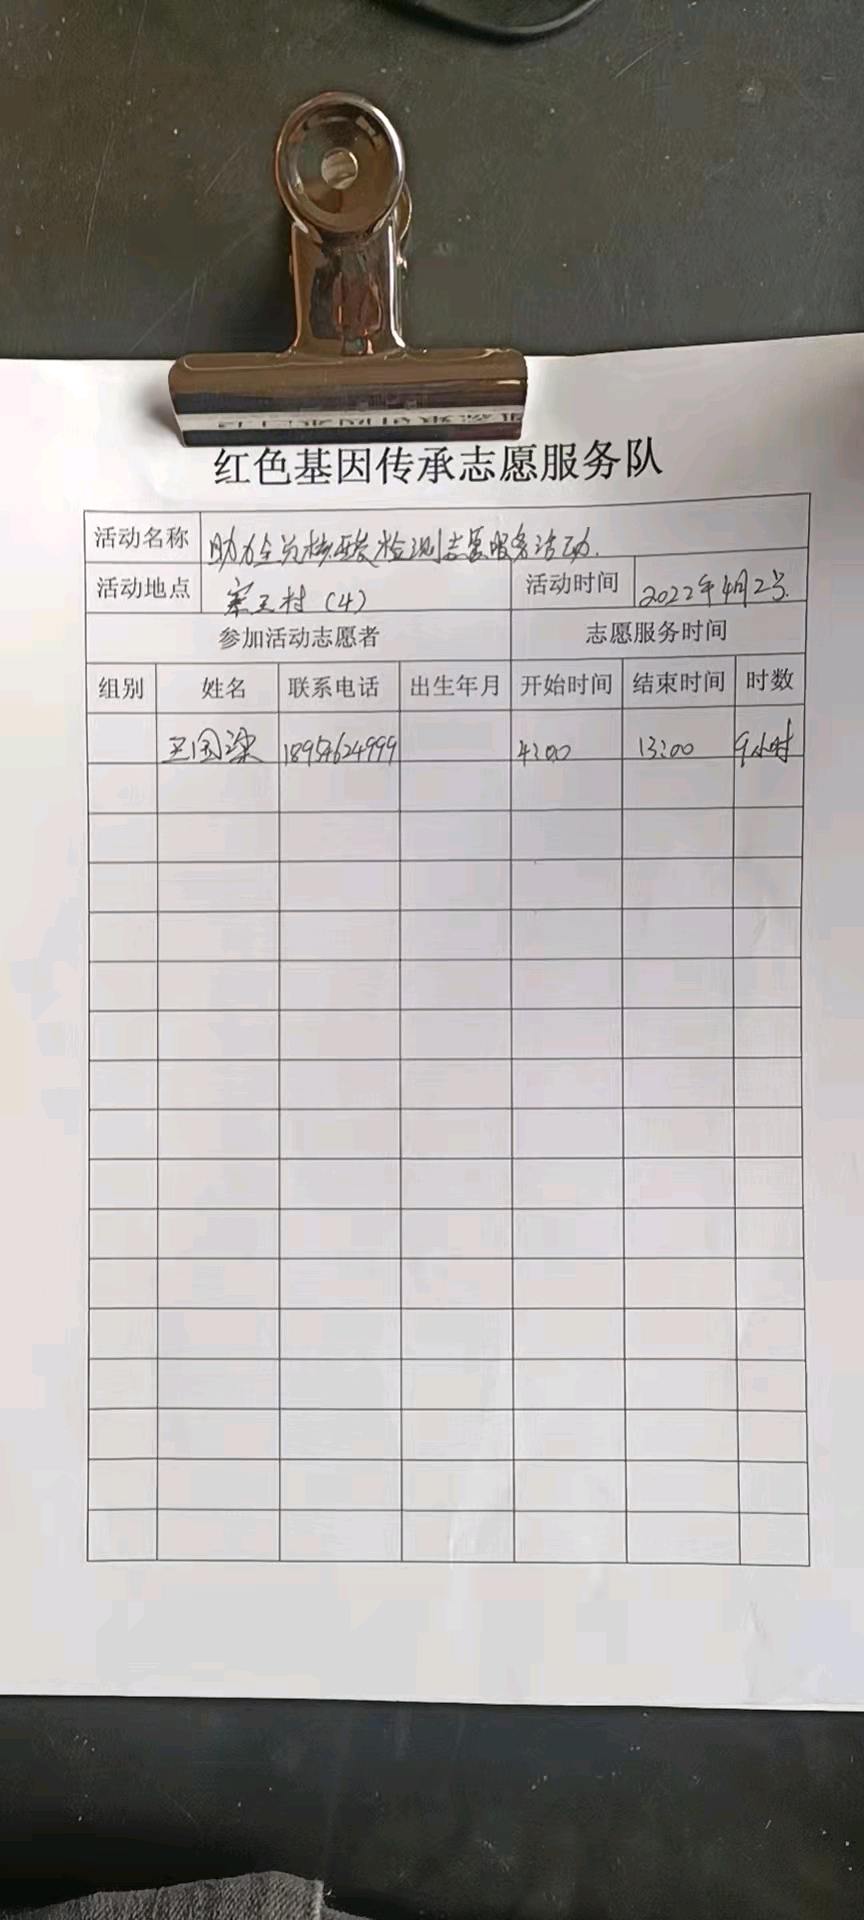 红色基因传承志愿服务队
活动名称 助力全员核酸检测志愿服务活动.
活动地点 寨王村(4) 活动时间 2022年4月2号.
参加活动志愿者 志愿服务时间
组别 姓名 联系电话 出生年月 开始时间 结束时间 时数
王国梁 18954624999 4:00 13:00 9小时